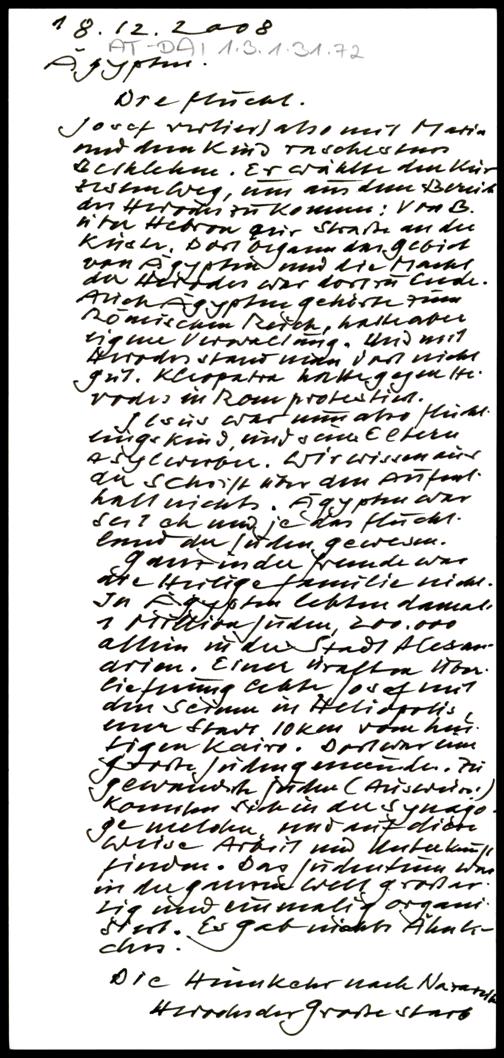 18.12.2008
AT-DAI 1.3.1.31.72
Ägypten.
Die Flucht.
Josef verließ also mit Maria
und dem Kind raschestens
Bethlehem. Er wählte den kür-
zesten Weg, um aus dem Bereich
des Herodes zu kommen: Von B.
über Hebron zur Straße an der
Küste. Dort begann das Gebiet
von Ägypten und die Macht
des Herodes war dort zu Ende.
Auch Ägypten gehörte zum
Römischen Reich, hatte aber
eigene Verwaltung. Und mit
Herodes stand man dort nicht
gut. Kleopatra hatte gegen He-
rodes in Rom protestiert.
Jesus war nun also Flücht-
lingskind, und seine Eltern
Asylwerber. Wir wissen aus
der Schrift über den Aufent-
halt nichts. Ägypten war
seit eh und je das Flucht-
land der Juden gewesen.
Ganz in der Fremde war
die Heilige Familie nicht.
In Ägypten lebten damals
1 Million Juden, 200.000
allein in der Stadt Alexan-
drien. Einer uralten Über-
lieferung lebte Josef mit
den Seinen in Heliopolis,
einer Stadt 10 km vom heu-
tigen Kairo. Dort war eine
große Judengemeinde. Zu
gewanderte Juden (Ausweis!)
konnten sich in der Synago-
ge melden, und auf diese
Weise Arbeit und Unterkunft
finden. Das Judentum war
in der ganzen Welt großar-
tig und einmalig organi-
siert. Es gab nichts Ähnli-
ches.
Die Heimkehr nach Nazareth
Herodes der Große starb